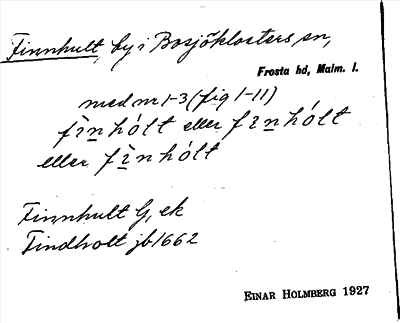 Finnhult, by i Bosjöklosters sn,
Frosta hd, Malm. l.
med nr 1-3 (fig 1-11)
fìn hólt eller fìn hólt
eller fìn hólt
Finnhult G, ek
Findholt jb 1662
EINAR HOLMBERG 1927